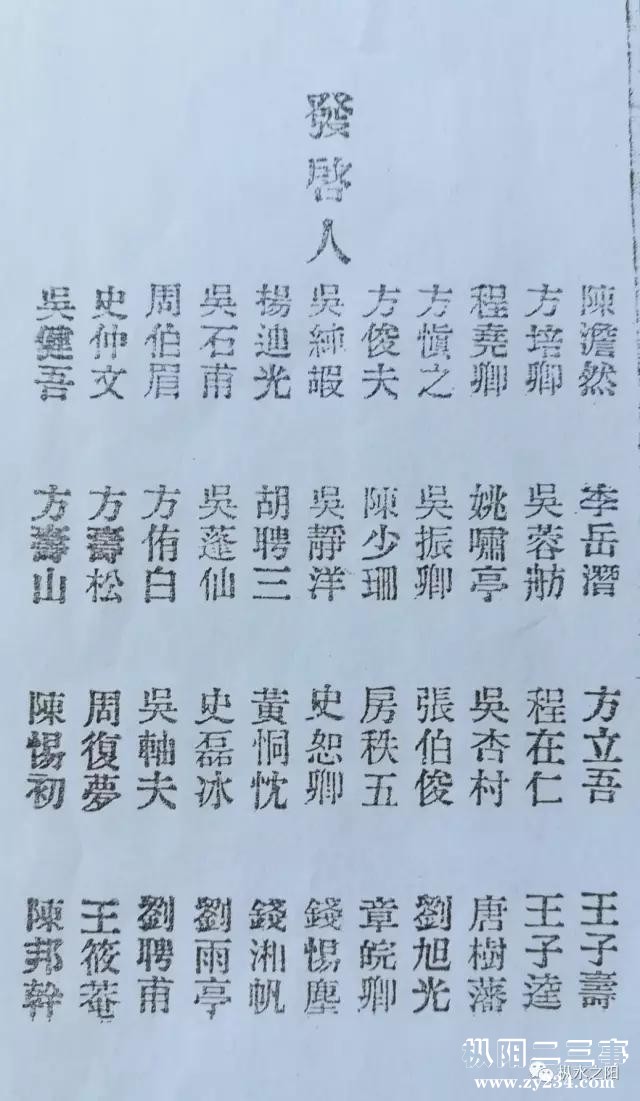 發啓人
陳澹然
方培卿
程堯卿
方愼之
方俊夫
吳純嘏
楊迪光
吳石甫
周伯眉
史仲文
吳健吾
李岳潛
吳蓉舫
姚嘯亭
吳振卿
陳少珊
吳靜洋
胡聘三
吳蓬仙
方侑白
方壽松
方壽山
方立吾
程在仁
吳杏村
張伯俊
房秩五
史恕卿
黃恫忱
史磊冰
吳軸夫
周復夢
陳惕初
王子壽
王子逵
唐樹藩
劉旭光
章皖卿
錢惕塵
錢湘帆
劉雨亭
劉聘甫
王筱菴
陳邦幹
枞阳二三事
枞水之阳
www.zy234.com